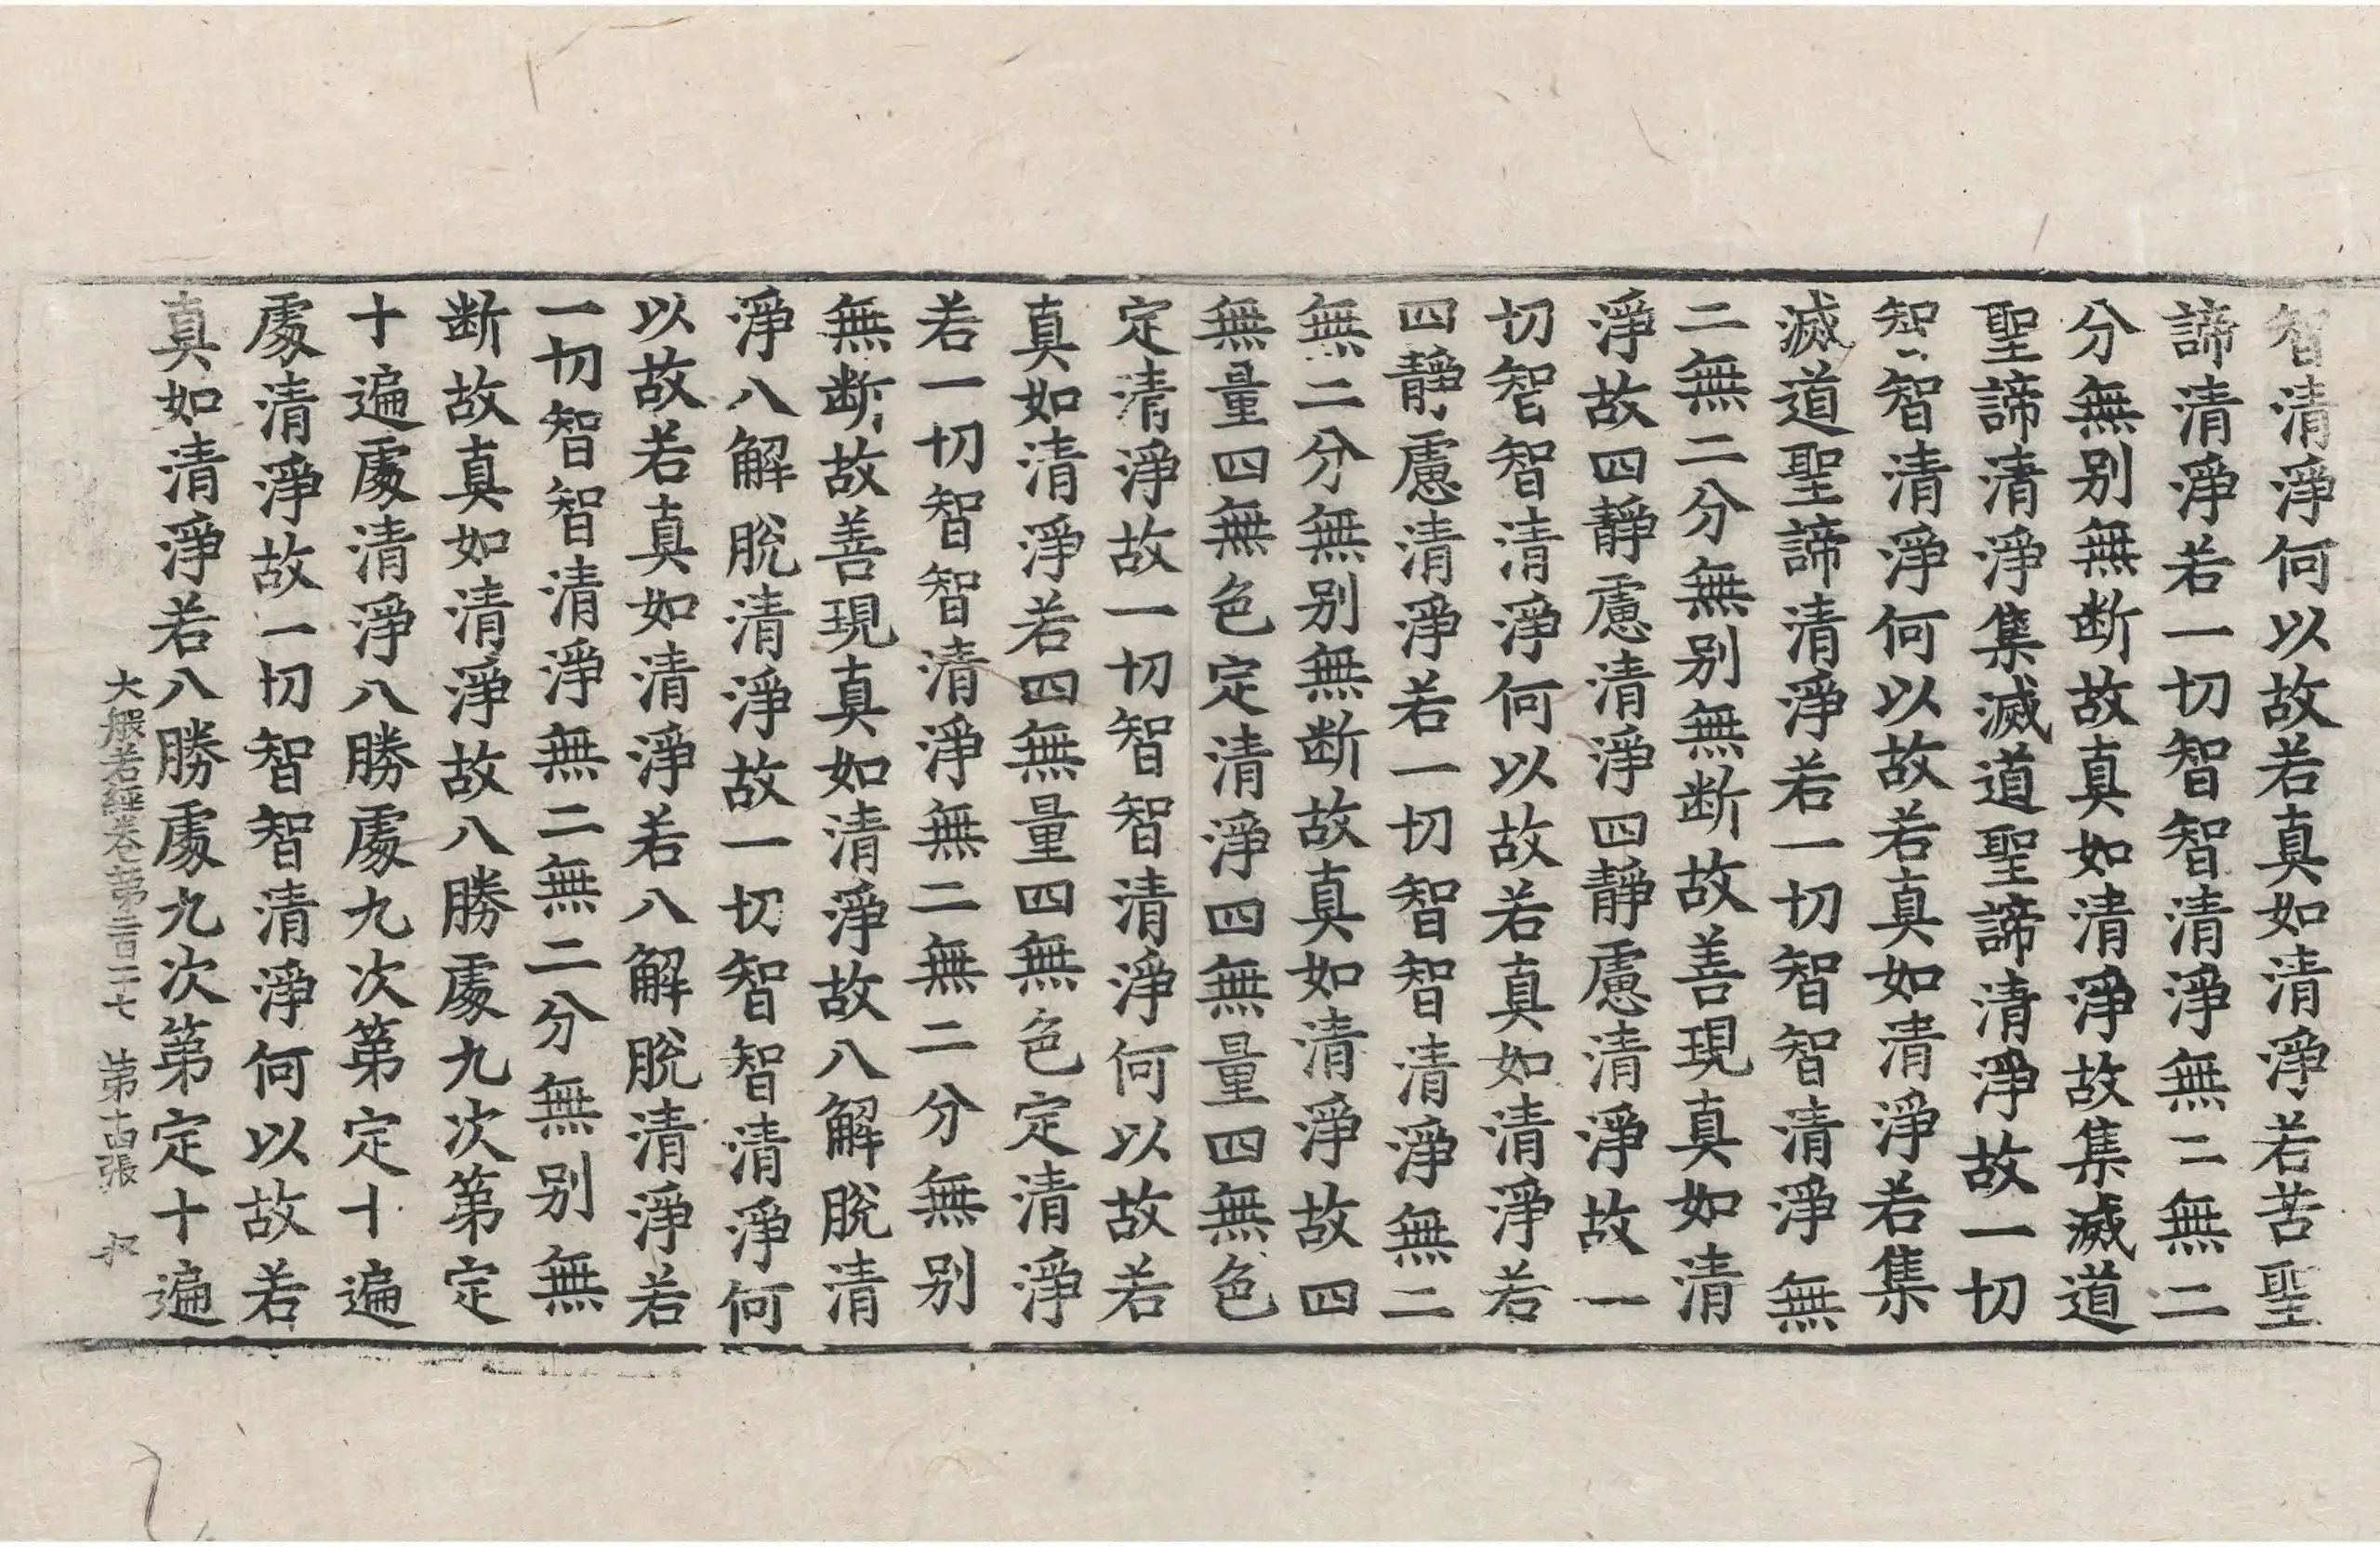 智清淨何以故若真如清淨若苦聖
諦清淨若一切智智清淨無二無二
分無別無断故真如清淨故集滅道
聖諦清淨集滅道聖諦清淨故一切
智智清淨何以故若真如清淨若集
滅道聖諦清淨若一切智智清淨無
二無二分無別無断故善現真如清
淨故四靜慮清淨四靜慮清淨故一
切智智清淨何以故若真如清淨若
四靜慮清淨若一切智智清淨無二
無二分無別無断故真如清淨故四
無量四無色定清淨四無量四無色
定清淨故一切智智清淨何以故若
真如清淨若四無量四無色定清淨
若一切智智清淨無二無二分無別
無断故善現真如清淨故八解脫清
淨八解脫清淨故一切智智清淨何
以故若真如清淨若八解脫清淨若
一切智智清淨無二無二分無別無
断故真如清淨故八勝處九次第定
十遍處清淨八勝處九次第定十遍
處清淨故一切智智清淨何以故若
真如清淨若八勝處九次第定十遍
大般若經卷第二百二七 第十四張